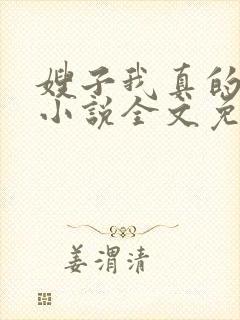 嫂子我真的
小说全文免
姜渭清